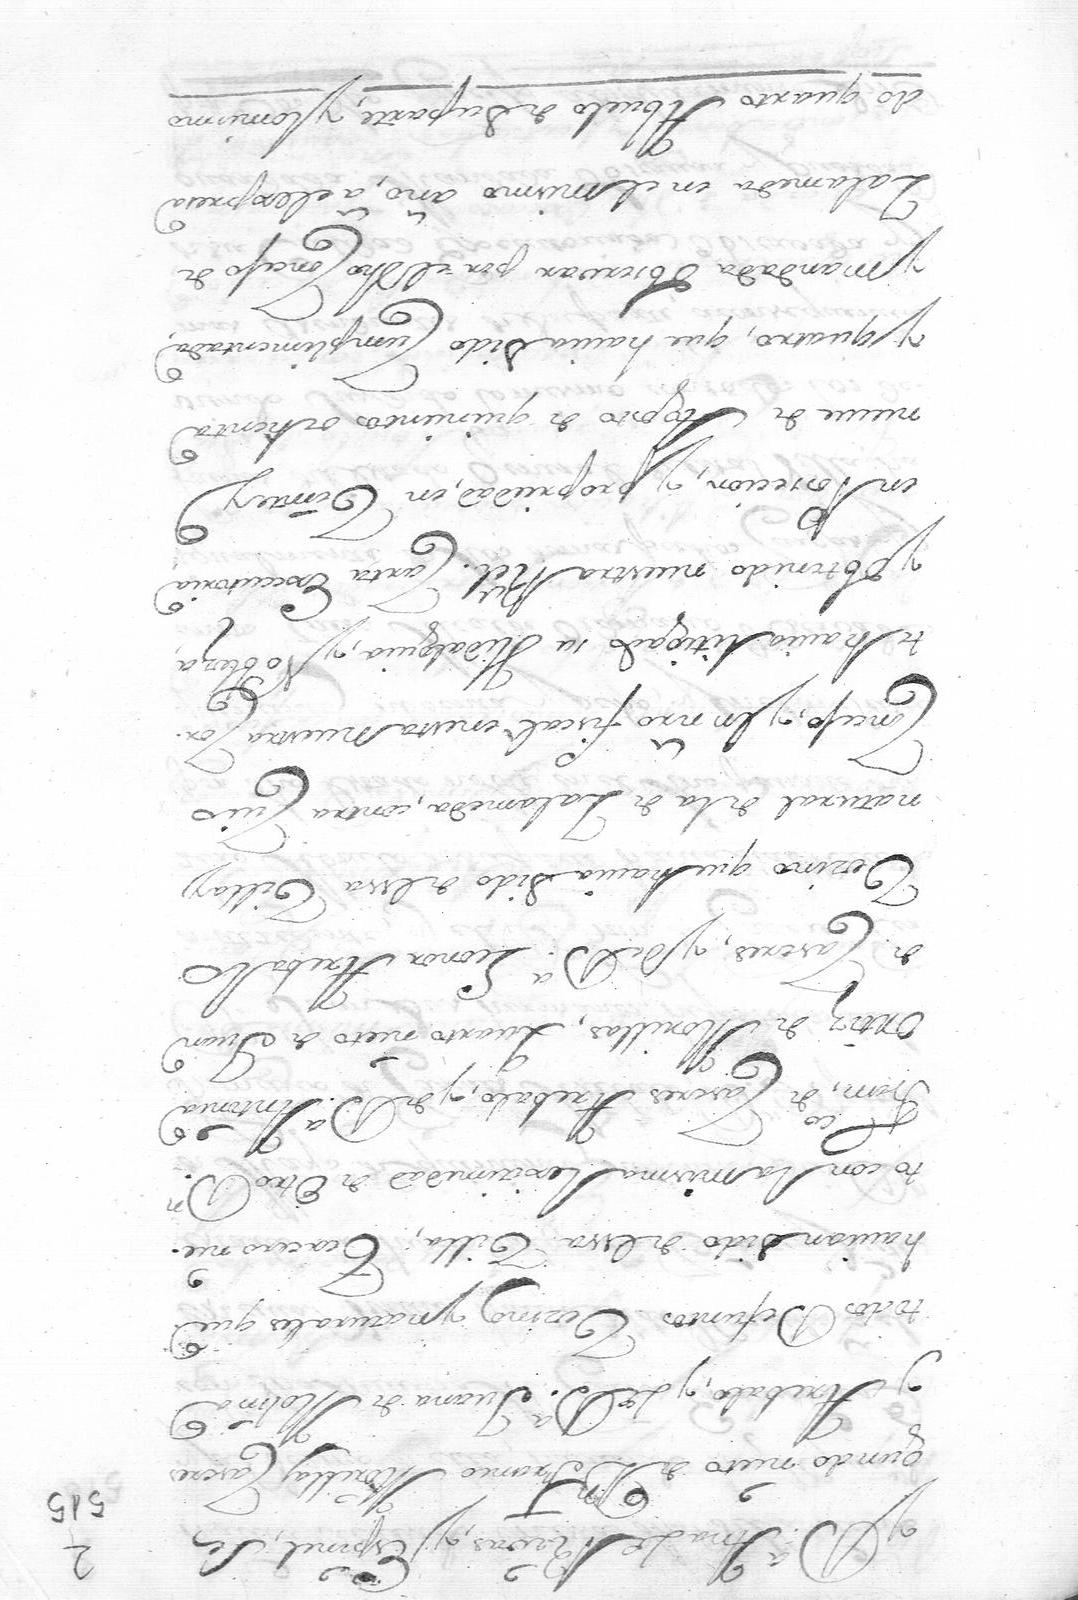 2
515
y D.ª Ana de Navas, y Espinel, Se
gundo nieto de D.n Franco Morillas Caseres
y Arebalo, y de D.ª Juana de Molina
todos Defuntos Vezinos, y naturales que
hauian sido de essa Villa; Terzero nie-
to con la misma lexitimidad de otro D.n
Fran.co de Caseres Arebalo, y de D.ª Antonia
Ortiz de Morillas, Quarto nieto de Juan
de Caseres, y de D.ª Leonor Arebalo
Vezino que hauia sido de essa Villa, y
natural de la de Zalamea, contra Cuio
Concejo, y un nro fiscal en esta nuestra Cor-
te hauia litigado su Hidalguia, y Nobleza,
y obtenido nuestra Rl. Carta Executoria
en Posecion, y propiedad, en Veinte y
nueue de Agosto de quinientos ochenta
y quatro, que hauia sido Cumplimentada,
y mandada Observar por el dho Concejo de
Zalamea en el mismo año, a el expresa
do quarto Abuelo de su parte, y lo mismo